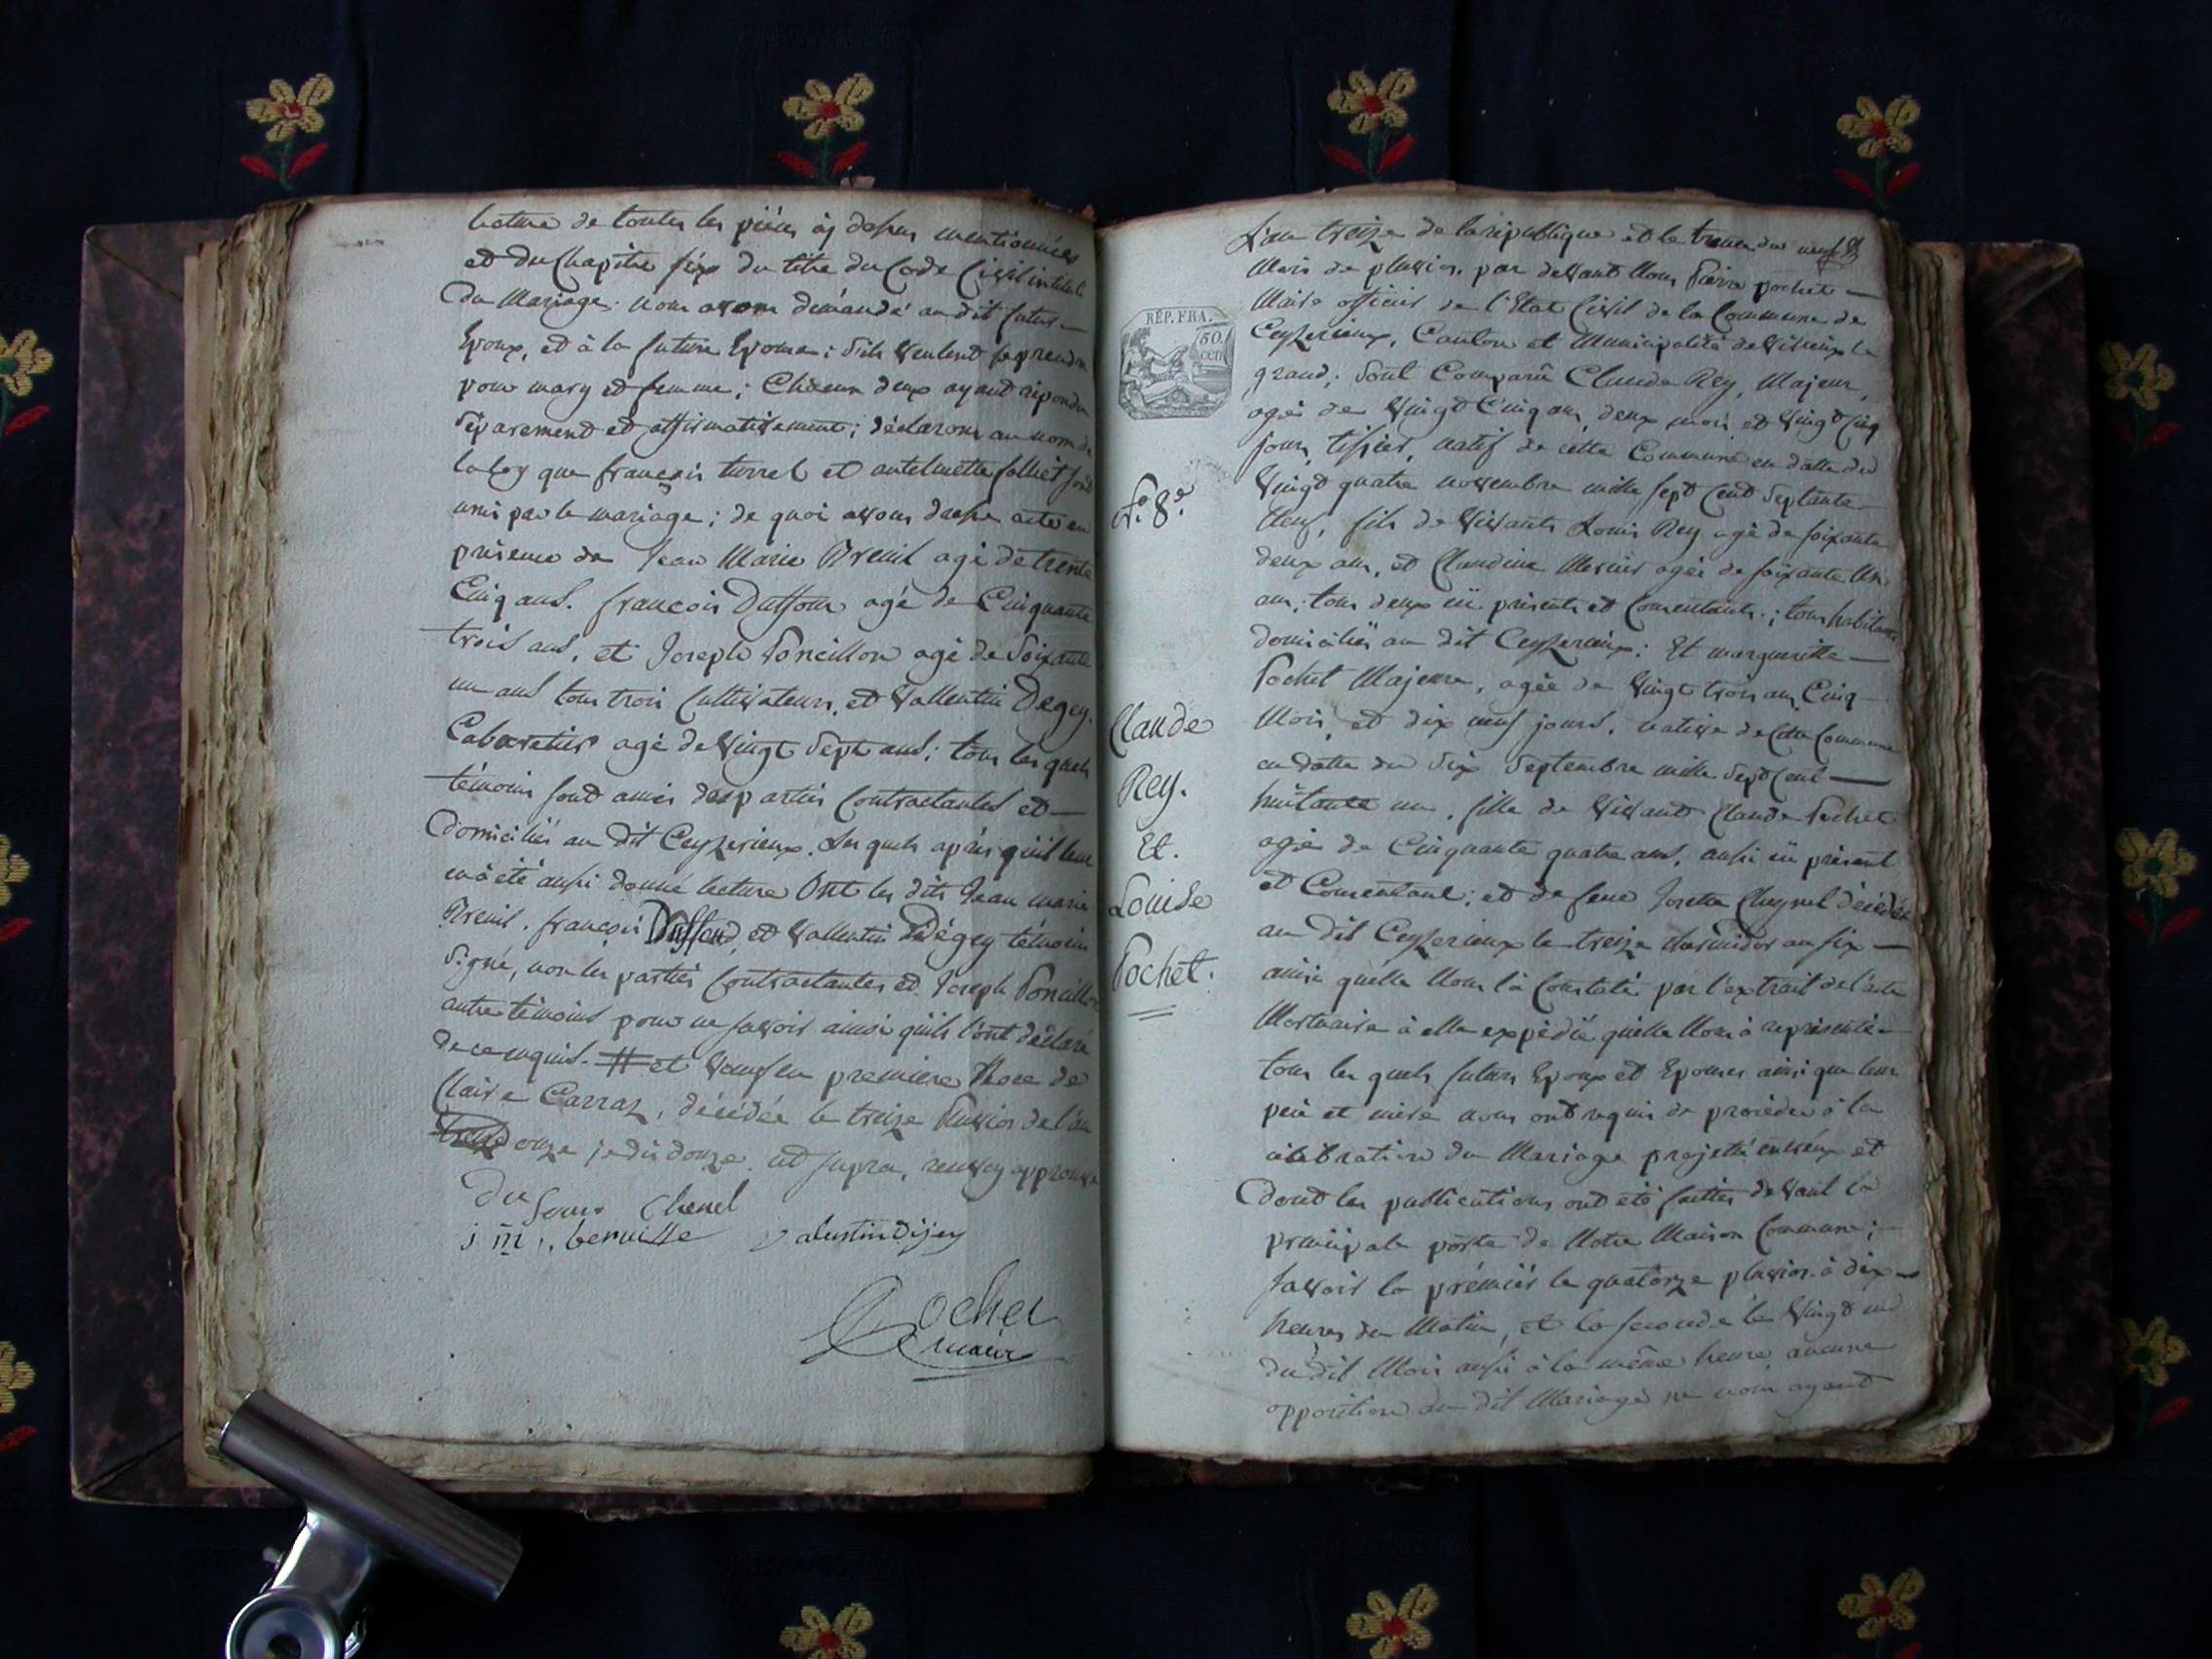 lecture de toutes les pièces cy dessus mentionnées
et du Chapitre six du titre du Code Civil intitulé
Du Mariage. nous avons démandé au dit futur
Epoux, et à la future Epouse; s'ils veulent se prendre
pour mary et femme; Chacun deux ayant répondu
séparement et affirmativement; déclarons au nom de
la loy que françois turrel et antelmette folliet sont
unis par le mariage; de quoi avons dressé acte en
présence de Jean Marie Breuil agé de trente
Cinq ans. françois Duffour agé de Cinquante
trois ans, et Joseph Poncillon agé de Soixante
un ans tous trois Cultivateurs, et Vallentin Degey.
Cabaretier agé de Vingt Sept ans; tous les quels
témoins sont amis des parties Contractantes et
Domiciliés au dit Ceyzerieux. Les quels aprés qu'il leur
en à été aussi donné lecture Ont les dits Jean marie
Breuil. françois et Vallentin Dégey témoins
Signé, non les parties Contractantes et Joseph Poncillon
autre témoins pour ne savoir ainsi qu'ils l'ont déclaré
de ce enquis. # et Veuf en premiere Noce de
Claire Carraz, décédée le treize Pluviose de l'an
onze je dis douze. ut supra, renvoy approuvé
Du four Chenel
j m. berruille valentin Dijey
Pochet
maire
L'an treize de la république et le trente du
Mois de pluviose. par devant Nous Pierre pochet
Maire officier de l'Etat Civil de la Commune de
Ceyzerieux, Canton et Municipalité de Virieux le
grand; Sont Comparû Claude Rey, Majeur,
agé de Vingt Cinq ans, deux mois et Vingt Cinq
jours, tissier, natif de cette Commune en datte du
Vingt quatre novembre mille sept Cent Septante
Neuf, fils de Vivants Louis Rey agé de soixante
deux ans, et Claudine Mercier agée de soixante Un
ans; tous deux ici présents et Consentants; tous habitants
domiciliés au dit Ceyzerieux: Et marguerite
Pochet Majeure, agée de Vingt trois ans, Cinq
Mois, et dix neuf jours. native de Cette Commune
en datte du Six Septembre mille Sept Cent
huitante un, fille de Vivant Claude Pochet
agé de Cinquante quatre ans, aussi ici présent
et Consentant; et de feue Josette décédée
au dit Ceyzerieux le treize thermidor an six
ainsi quelle Nous l'à Constaté par l'extrait de l'acte
Mortuaire à elle expédié quelle Nous à représenté
tous les quels futurs Epoux et Epouses ainsi que leur
père et mère nous ont requis de procéder à la
célébration du Mariage projetté entr'eux et
dont les publications ont été faittes devant la
principale porte de Notre Maison Commune;
savoir la prémière le quatorze pluviose à dix
heures du Matin, et la seconde le Vingt un
du dit Mois aussi à la même heure, aucune
opposition au dit Mariage ne nous ayant
RÉP. FRA.
50.
cen
N.º 8.e
Claude
Rey.
Et.
Louise
Pochet.